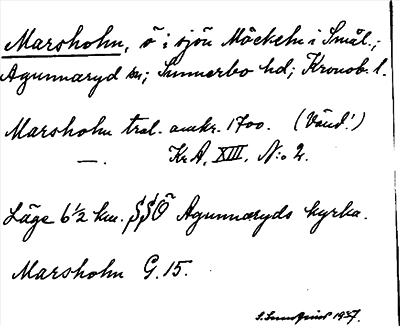 Marsholm, ö i sjön Möckeln i Smål.;
Agunnaryd sn; Sunnerbo hd; Kronob. l.
Marsholm trol. omkr. 1700. (Vänd!)
—. KrA, XIII, N:o 2.
Läge 6½ km. SSÖ Agunnaryds kyrka.
Marsholm G. 15.
S. Lundqvist 1937.